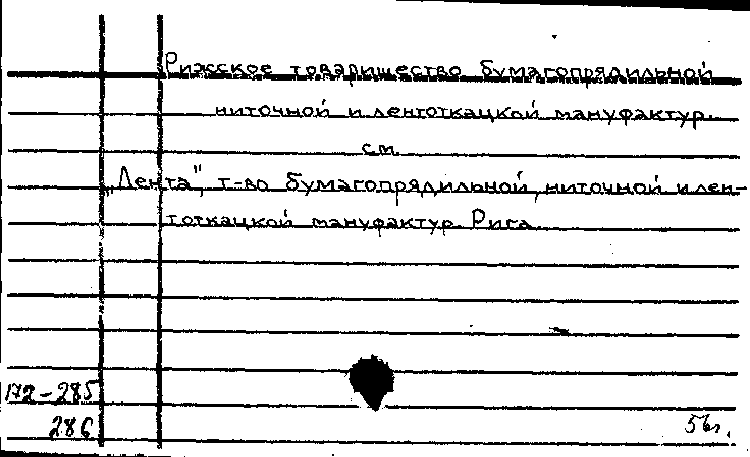 Рижское товарищество бумагопрядильной
ниточной и лентоткацкой мануфактур.
см.
„Лента", т-во бумагопрядильной, ниточной и лен-
тоткацкой мануфактур. Рига.
172-285
286
56г.